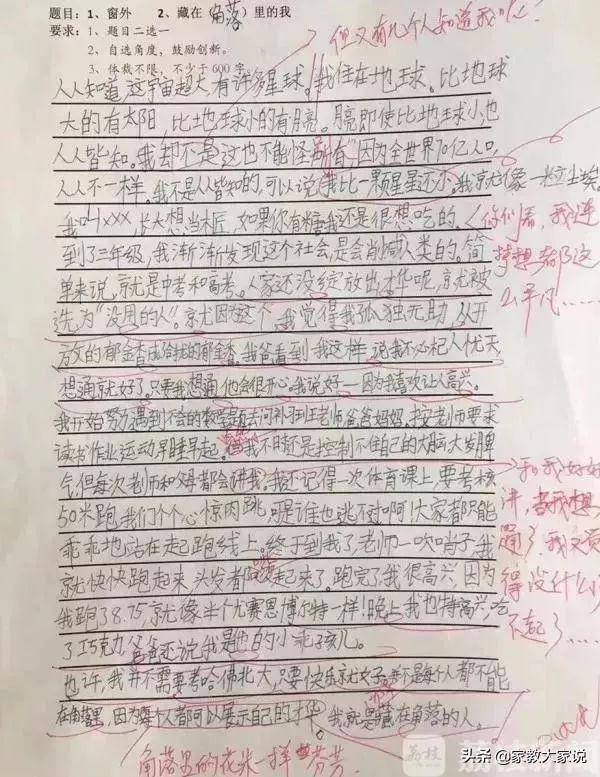 题目：1、窗外　2、藏在（角落）里的我
要求：1、题目二选一
2、自选角度，鼓励创新。
3、体裁不限，不少于600字
但又有几个人知道我呢
人人知道，这宇宙超大有许多星球。我住在地球。比地球
大的有太阳，比地球小的有月亮。月亮即使比地球小，也
人人皆知。我却不是这也不能怪所有，因为全世界70亿人口，
人人不一样。我不是人皆知的，可以说我比一颗星星还小，我就像一粒尘埃。
我叫xxx，长大想当木匠，如果你有糖我还是很想吃的。
你们看，我连
梦想都那这
么平凡……
到了三年级，我渐渐发现这个社会，是会消灭人类的。简
单来说，就是中考和高考。人家还没绽放出才华呢，就被
选为“没用的人”。就因为这个，我觉得我孤独无助，从开
放的郁金香成枯拢的郁金香。我爸看到我这样，说我不必杞人忧天
想通就好了。只要我想通，他会很开心。我说好——因为我喜欢让人高兴。
我开始努力遇到不会的数学题去问补习班老师爸爸妈妈，按老师要求
读书作业运动早睡早起。但我不时还是控制不住自己的大脑大发脾
气，但每次老师和父母都会讲我。我还记得一次体育课上，要考核
和我好好
讲，当我想
通了，我又觉
得没什么
了……
50米跑，我们个个心惊肉跳，可是谁也逃不过啊！大家都只能
乖乖地站在起跑线上。终于到我了，老师一吹哨子，我
就快快跑起来，头发都飘起来了。跑完了，我很高兴，因为
我跑了8.75，就像半个九赛恩博尔特一样！晚上我也特高兴，吃
了巧克力，爸爸还说我是他的小乖孩儿。
也许，我并不需要考哈佛北大，只要快乐就好，并不是每个人都不能
在角落里，因为每个人都可以展示自己的才华。我就是藏在角落的人。
角落里的花朵一样芬芳
荔枝
头条 @家教大家说